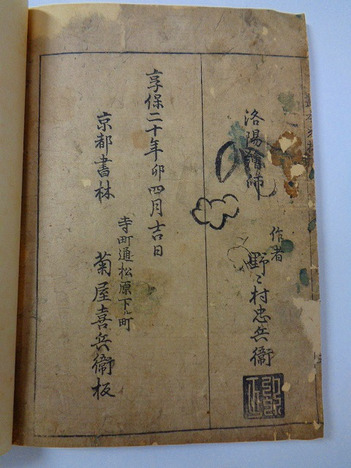 洛陽繪師
作者 野〻村忠兵衞
享保二十年卯四月吉日
京都書林
寺町通松原下ル町
菊屋喜兵衞板